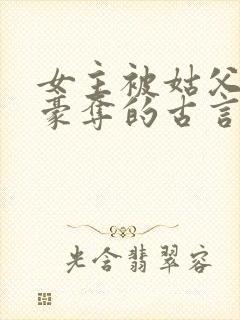 女主被姑父
豪夺的古言
光含翡翠容